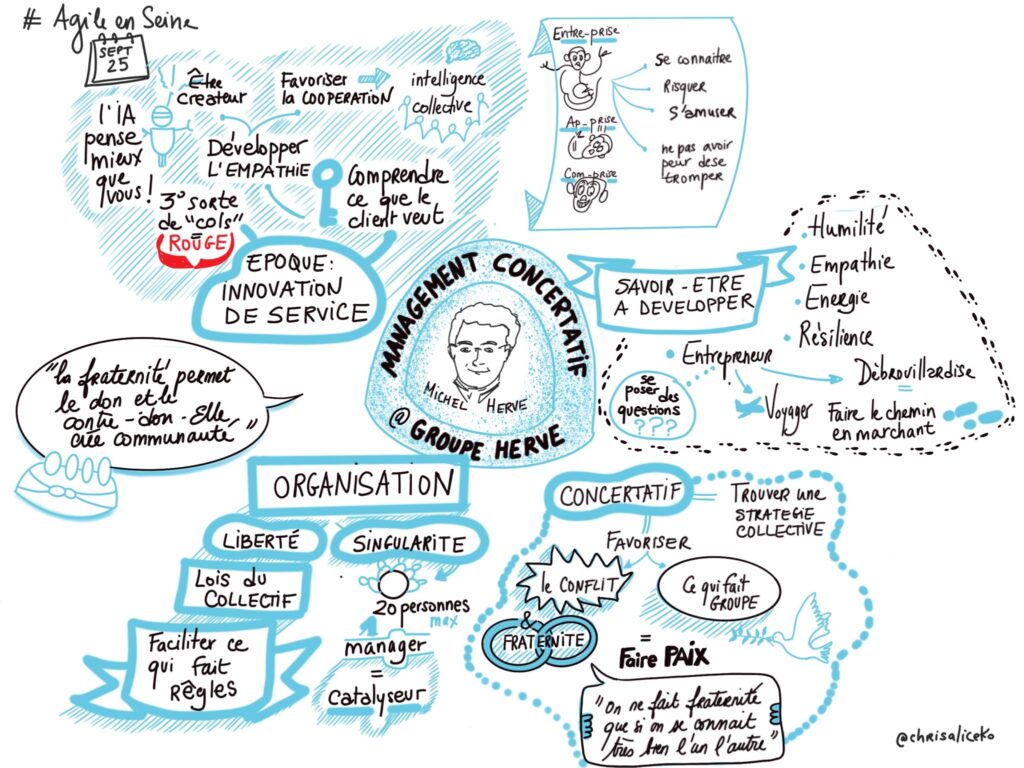 # Agile en Seine
SEPT
25
l'IA
pense
mieux
que
vous !
Être
créateur
Favoriser
la COOPERATION
intelligence
collective
Développer
L'EMPATHIE
Comprendre
ce que le
client veut
3° sorte
de "cols"
=
ROUGE
EPOQUE :
INNOVATION
DE SERVICE
Entre-prise
Ap-prise
Com-prise
Se connaitre
Risquer
S'amuser
ne pas avoir
peur de se
tromper
MANAGEMENT CONCERTATIF
MICHEL HERVE
@ GROUPE HERVE
SAVOIR-ETRE
A DEVELOPPER
• Humilité
• Empathie
• Energie
• Résilience
• Entrepreneur
se
poser des
questions
???
Voyager
Débrouillardise
=
Faire le chemin
en marchant
"la fraternité permet
le don et le
contre-don. Elle
crée communauté"
ORGANISATION
LIBERTÉ
SINGULARITE
Lois du
COLLECTIF
Faciliter ce
qui fait
RÊGLES
20 personnes
max
manager
=
catalyseur
CONCERTATIF
=
TROUVER UNE
STRATEGIE
COLLECTIVE
FAVORISER
le CONFLIT
&
FRATERNITE
Ce qui fait
GROUPE
=
Faire PAIX
"On ne fait fraternité
que si on se connait
très bien l'un l'autre"
@chrisaliceko